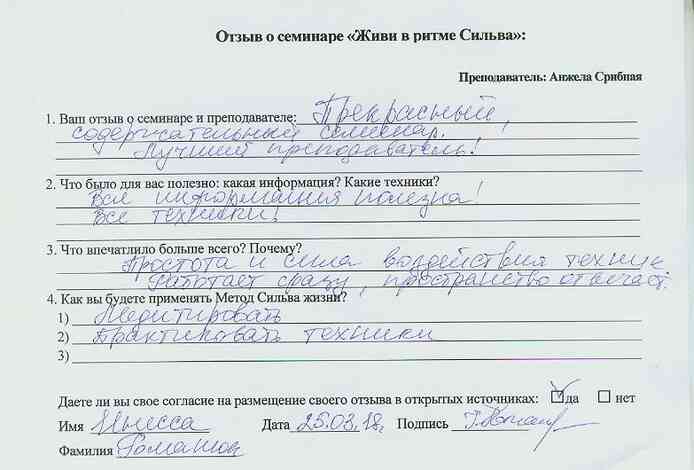 Отзыв о семинаре «Живи в ритме Сильва»:
Преподаватель: Анжела Срибная
1. Ваш отзыв о семинаре и преподавателе: Прекрасный,
содержательный семинар.
Лучший преподаватель!
2. Что было для вас полезно: какая информация? Какие техники?
Вся информация полезна!
Все техники!
3. Что впечатлило больше всего? Почему?
Простота и сила воздействия техник
Работает сразу, пространство отвечает.
4. Как вы будете применять Метод Сильва жизни?
1) Медитировать
2) Практиковать техники
3)
Даете ли вы свое согласие на размещение своего отзыва в открытых источниках: да нет
Имя Инесса Дата 25.03.18г. Подпись
Фамилия Романюк